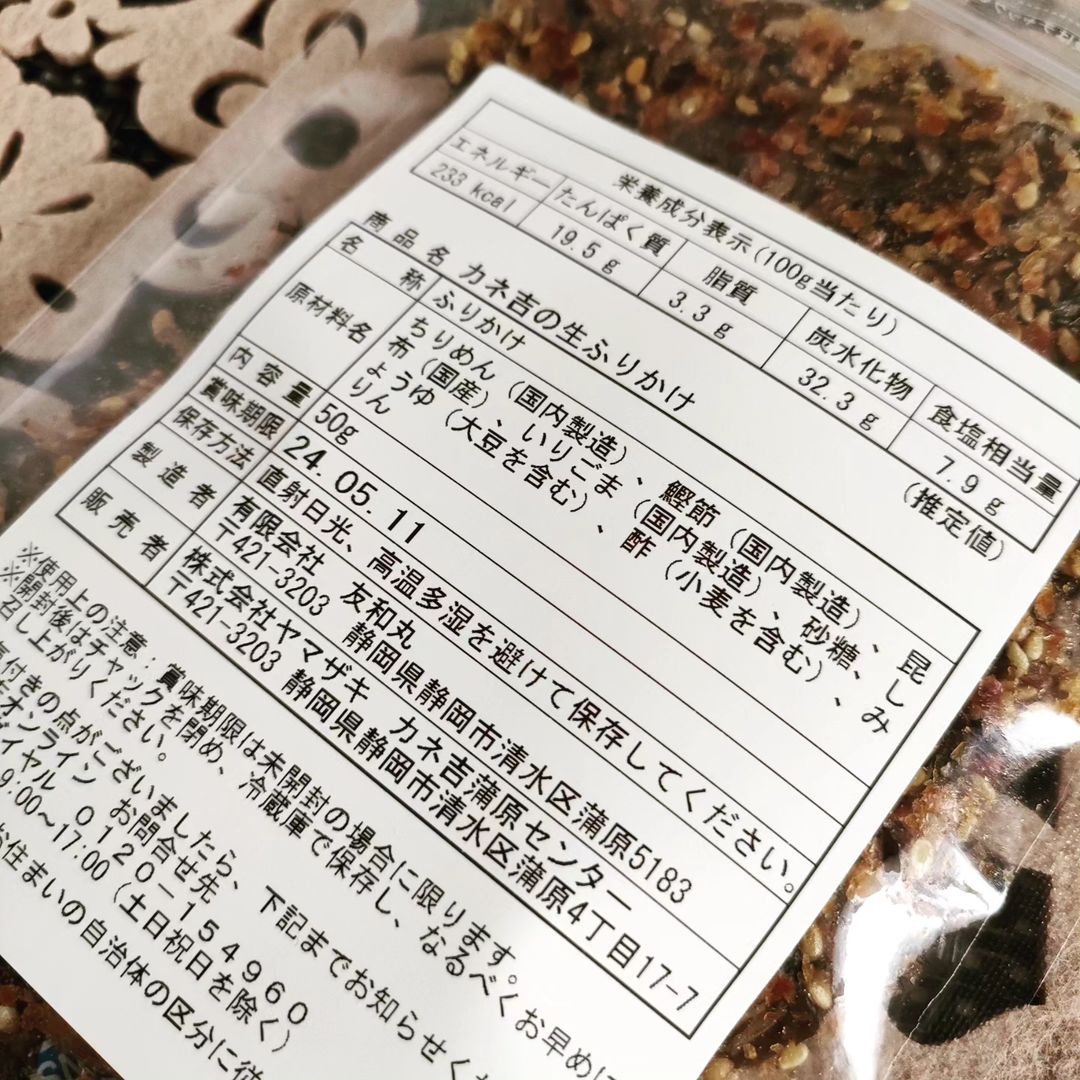 栄養成分表示(100g当たり)
エネルギー たんぱく質 脂質 炭水化物 食塩相当量
233 kcal 19.5 g 3.3 g 32.3 g 7.9 g
(推定値)
商品名 カネ吉の生ふりかけ
名称 ふりかけ
原材料名 ちりめん(国内製造)、鰹節(国内製造)、昆
布(国産)、いりごま(国内製造)、砂糖、し
ょうゆ(大豆を含む)、酢(小麦を含む)、み
りん
内容量 50g
賞味期限 24.05.11
保存方法 直射日光、高温多湿を避けて保存してください。
製造者 有限会社 友和丸
〒421-3203 静岡県静岡市清水区蒲原5183
販売者 株式会社ヤマザキ カネ吉蒲原センター
〒421-3203 静岡県静岡市清水区蒲原4丁目17-7
※使用上の注意:賞味期限は未開封の場合に限ります。
※開封後はチャックを閉め、冷蔵庫で保存し、なるべくお早めに
召し上がりください。
付きの点がございましたら、下記までお知らせくだ
オンライン お問合せ先
ダイヤル 0120-154960
9:00~17:00(土日祝日を除く)
お住まいの自治体の区分に従